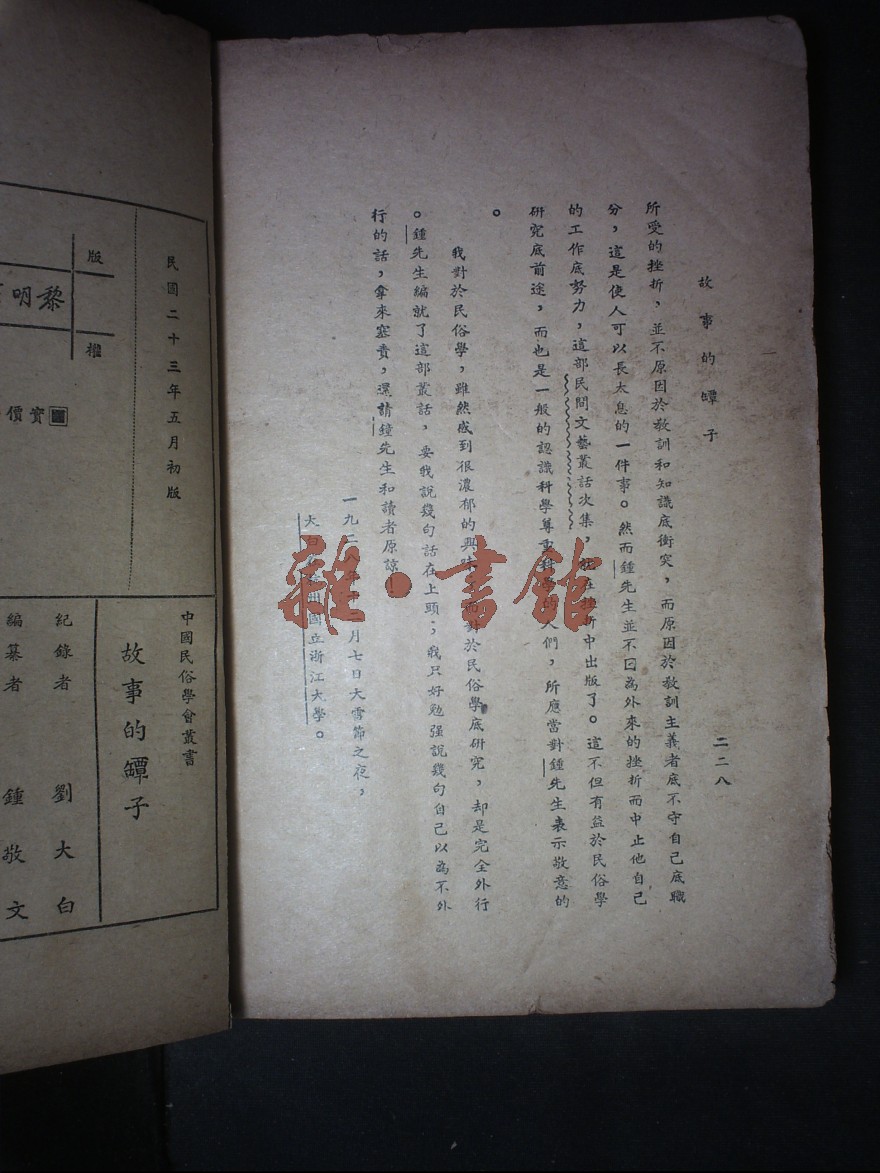 故事的罈子
二二八
所受的挫折，並不原因於教訓和知識底衝突，而原因於教訓主義者底不守自己底職
分，這是使人可以長太息的一件事。然而鍾先生並不因為外來的挫折而中止他自己
的工作底努力，這部民間文藝叢話次集，中出版了。這不但有益於民俗學
研究底前途，而也是一般的認識科學尊重人們，所應當對鍾先生表示敬意的
。
我對於民俗學，雖然感到很濃郁的興味，對於民俗學底研究，却是完全外行
。鍾先生編就了這部叢話，要我說幾句話在上頭；我只好勉强說幾句自己以為不外
行的話，拿來塞責，還請鍾先生和讀者原諒
一九二八月七日大雪節之夜，
大白州國立浙江大學。
版權
黎明
實價
民國二十三年五月初版
中國民俗學會叢書
故事的罈子
紀錄者 劉大白
編纂者 鍾敬文
雜·書館